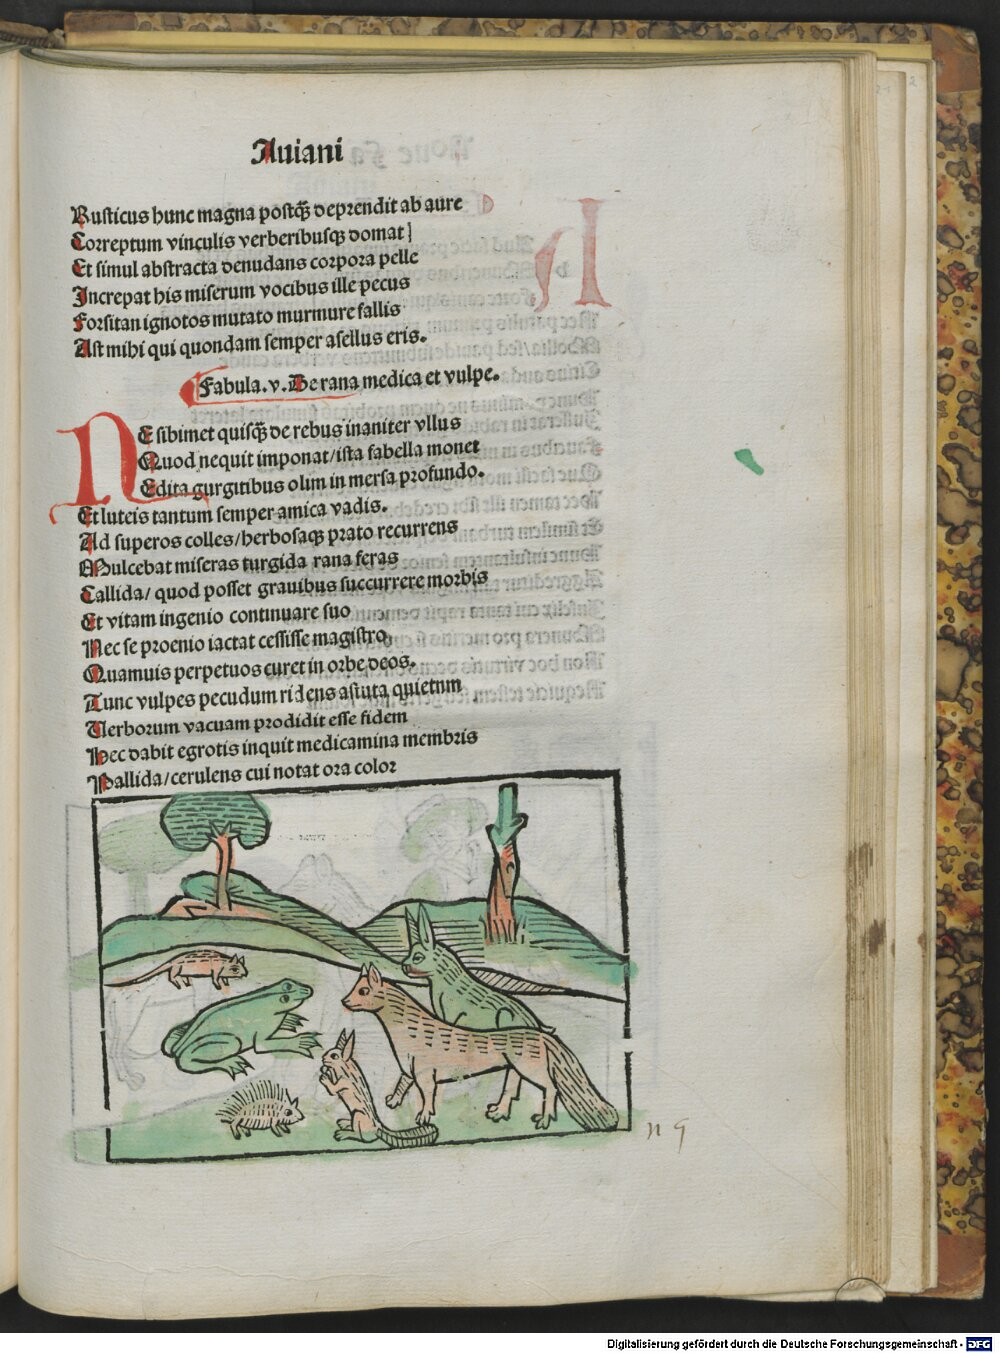 Auiani
Rusticus hunc magna postq̃ deprendit ab aure
Correptum vinculis verberibusq; domat
Et simul abstracta denudans corpora pelle
Increpat his miserum vocibus ille pecus
Forsitan ignotos mutato murmure fallis
Ast mihi qui quondam semper asellus eris.
Fabula.v. De rana medica et vulpe.
NE sibimet quisq̃ de rebus inaniter vllus
Quod nequit imponat/ista fabella monet
Edita gurgitibus olim in mersa profundo.
Et luteis tantum semper amica vadis.
Ad superos colles/herbosaq; prato recurrens
Mulcebat miseras turgida rana feras
Callida/ quod posset grauibus succurrere morbis
Et vitam ingenio continuare suo
Nec se proenio iactat cessisse magistro
Quamuis perpetuos curet in orbe deos.
Tunc vulpes pecudum ridens astuta quietum
Verborum vacuam prodidit esse fidem
Hec dabit egrotis inquit medicamina membris
Pallida/cerulens cui notat ora color
Digitalisierung gefördert durch die Deutsche Forschungsgemeinschaft - DFG